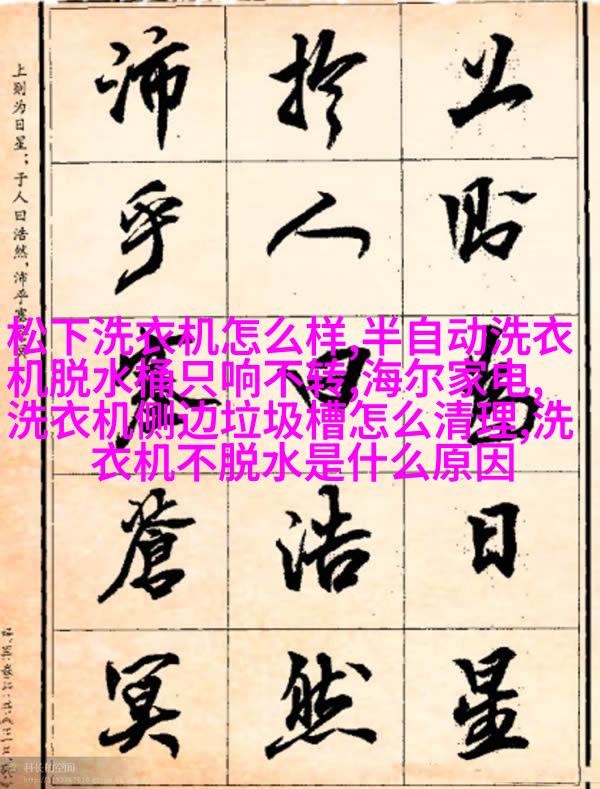 上则为日星
於人曰浩然
沛乎塞蒼冥
上则为日星;于人曰浩然,沛乎塞
松下洗衣机怎么样,半自动洗衣
机脱水桶只响不转,海尔家电,
洗衣机侧边垃圾槽怎么清理,洗
衣机不脱水是什么原因
科长的空间